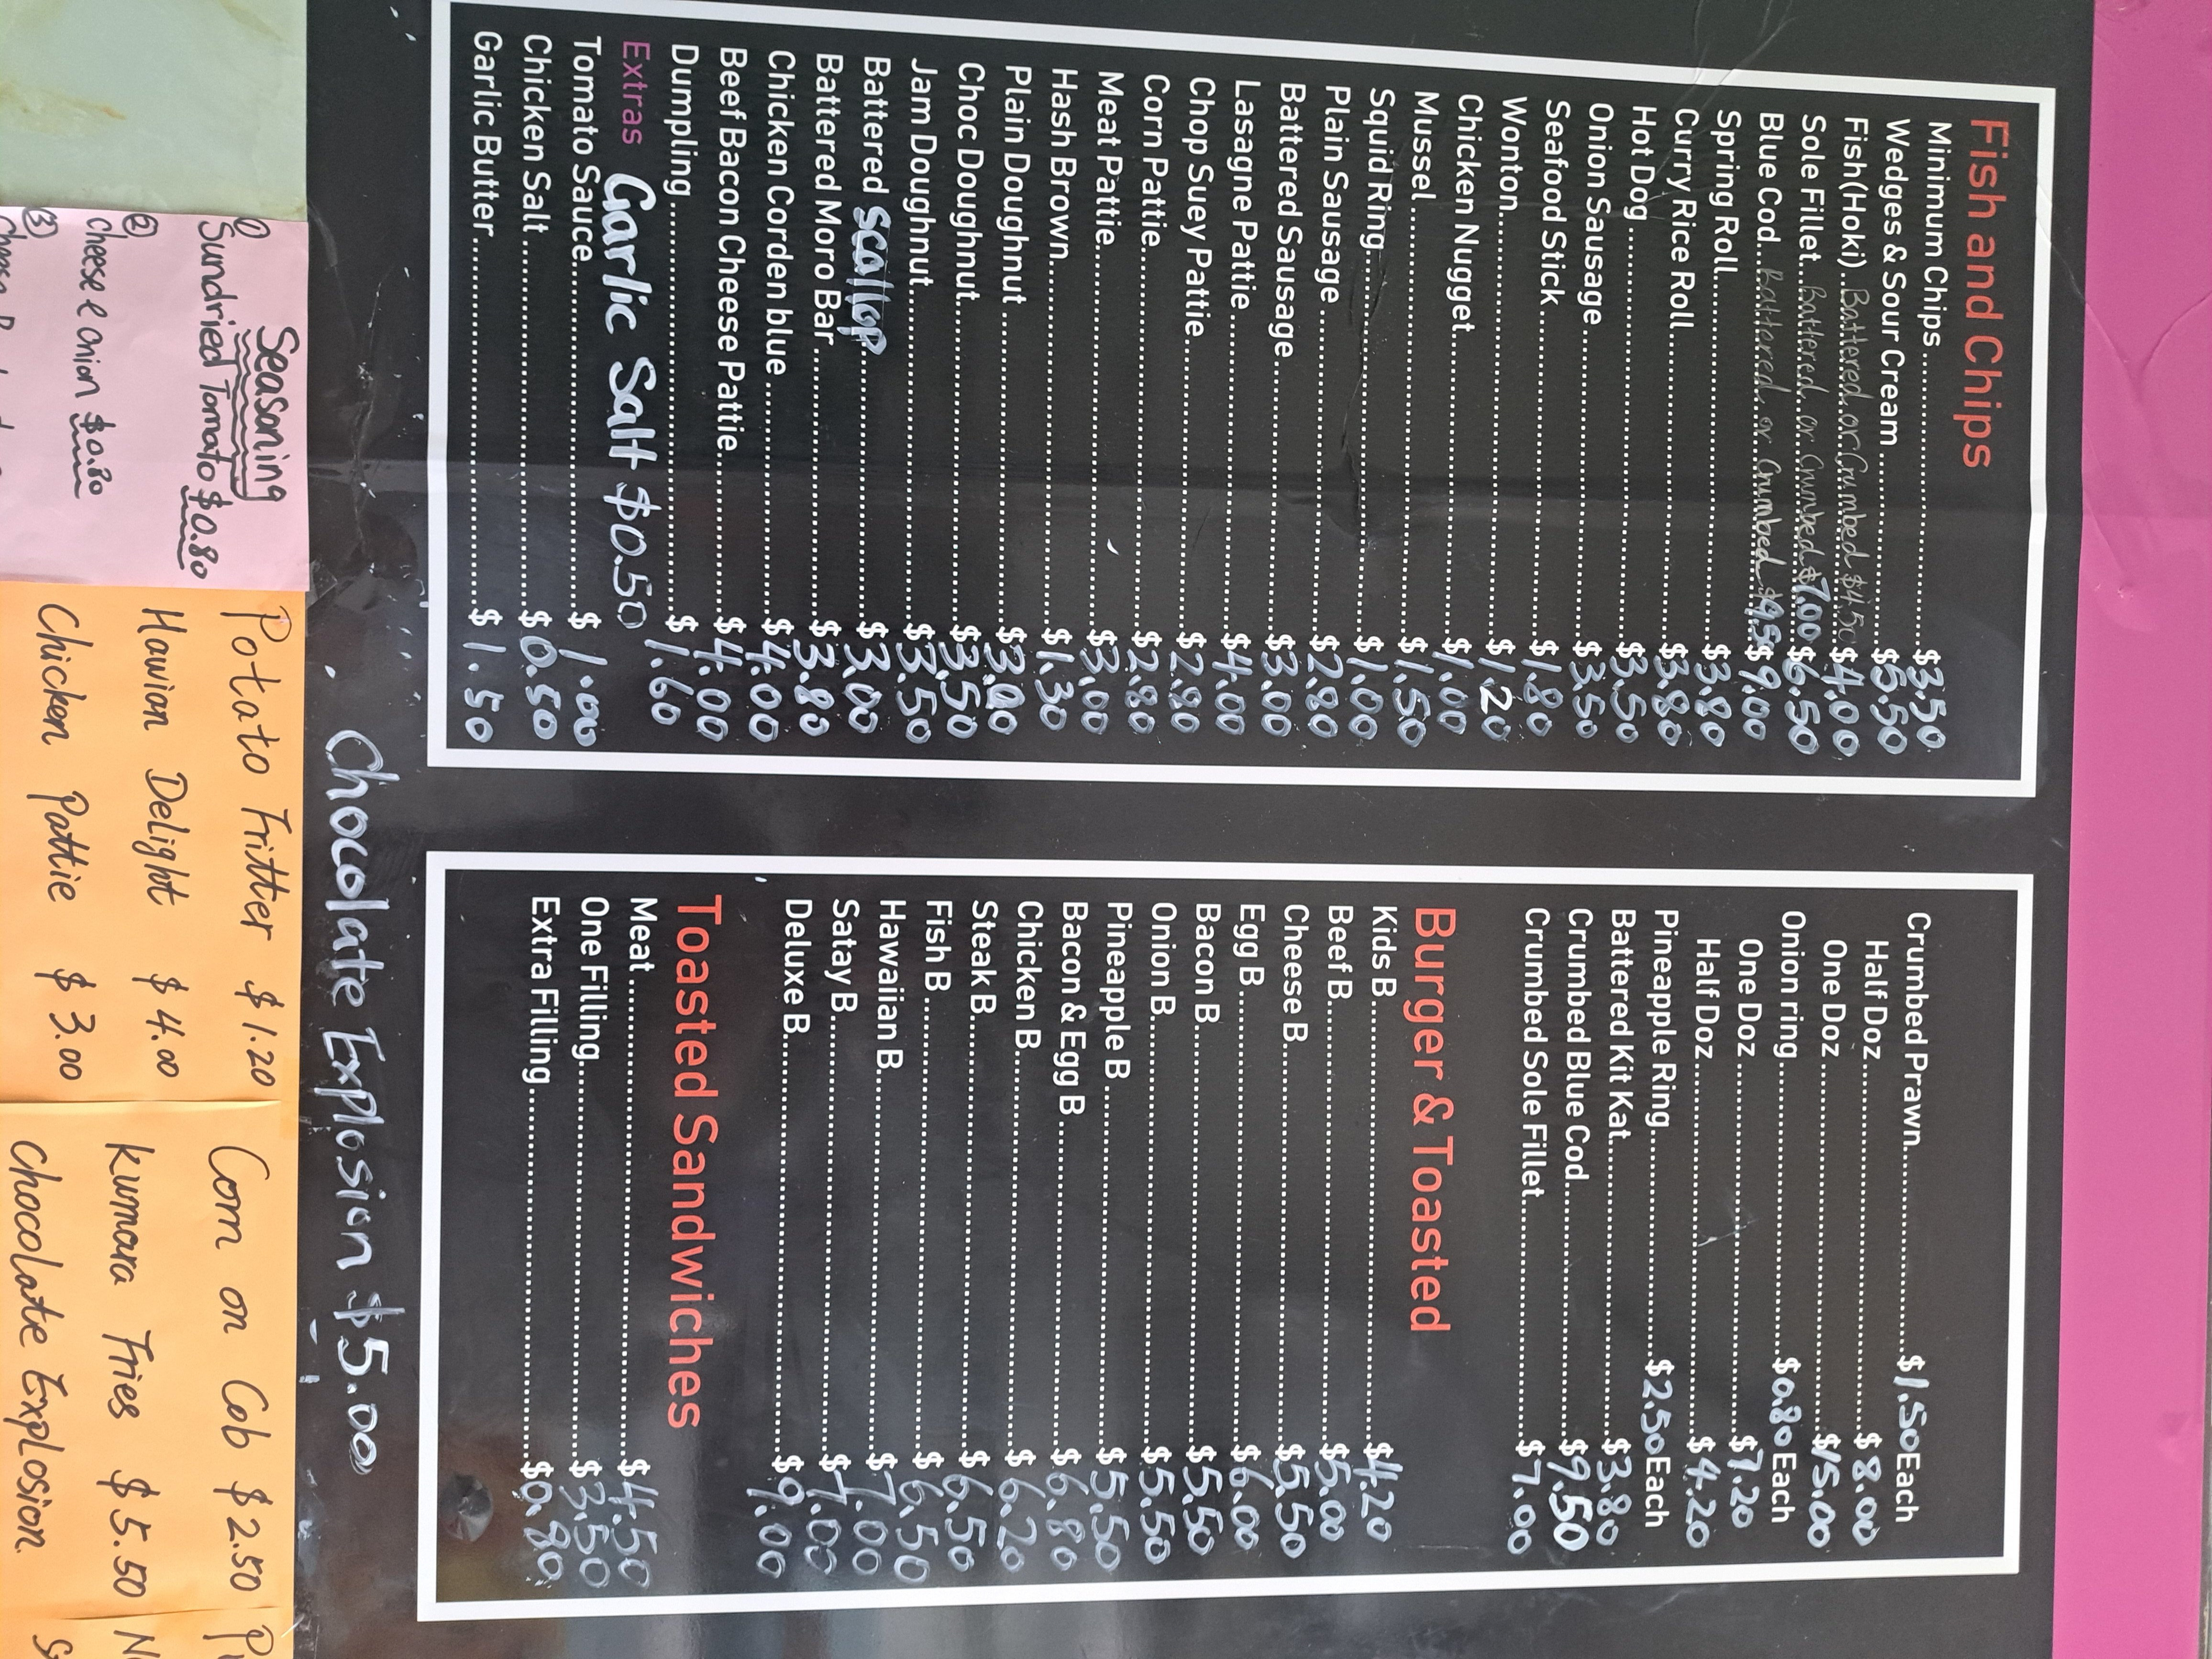 Fish and Chips
Minimum Chips $3.50
Wedges & Sour Cream $5.50
Fish(Hoki) Battered or Crumbed $4.50 $4.00
Sole Fillet Battered or Crumbed $7.00 $6.50
Blue Cod Battered or Crumbed $9.50 $9.00
Spring Roll $3.80
Curry Rice Roll $3.80
Hot Dog $3.50
Onion Sausage $3.50
Seafood Stick $1.80
Wonton $1.20
Chicken Nugget $1.00
Mussel $1.50
Squid Ring $1.00
Plain Sausage $2.80
Battered Sausage $3.00
Lasagne Pattie $4.00
Chop Suey Pattie $2.80
Corn Pattie $2.80
Meat Pattie $3.00
Hash Brown $1.30
Plain Doughnut $3.00
Choc Doughnut $3.50
Jam Doughnut $3.50
Battered scallop $3.00
Battered Moro Bar $3.80
Chicken Corden blue $4.00
Beef Bacon Cheese Pattie $4.00
Dumpling $1.60
Extras Garlic Salt $0.50
Tomato Sauce $1.00
Chicken Salt $0.50
Garlic Butter $1.50
Crumbed Prawn $1.50 Each
Half Doz $8.00
One Doz $15.00
Onion ring $0.80 Each
One Doz $7.20
Half Doz $4.20
Pineapple Ring $2.50 Each
Battered Kit Kat $3.80
Crumbed Blue Cod $9.50
Crumbed Sole Fillet $7.00
Burger & Toasted
Kids B $4.20
Beef B $5.00
Cheese B $5.50
Egg B $6.00
Bacon B $5.50
Onion B $5.50
Pineapple B $5.50
Bacon & Egg B $6.80
Chicken B $6.20
Steak B $6.50
Fish B $6.50
Hawaiian B $7.00
Satay B $7.00
Deluxe B $9.00
Toasted Sandwiches
Meat $4.50
One Filling $3.50
Extra Filling $0.80
Chocolate Explosion $5.00
Seasoning
① Sundried Tomato $0.80
② Cheese & Onion $0.80
③
Potato Fritter $1.20
Hawion Delight $4.00
Chicken Pattie $3.00
Corn on Cob $2.50
Kumara Fries $5.50
Chocolate Explosion